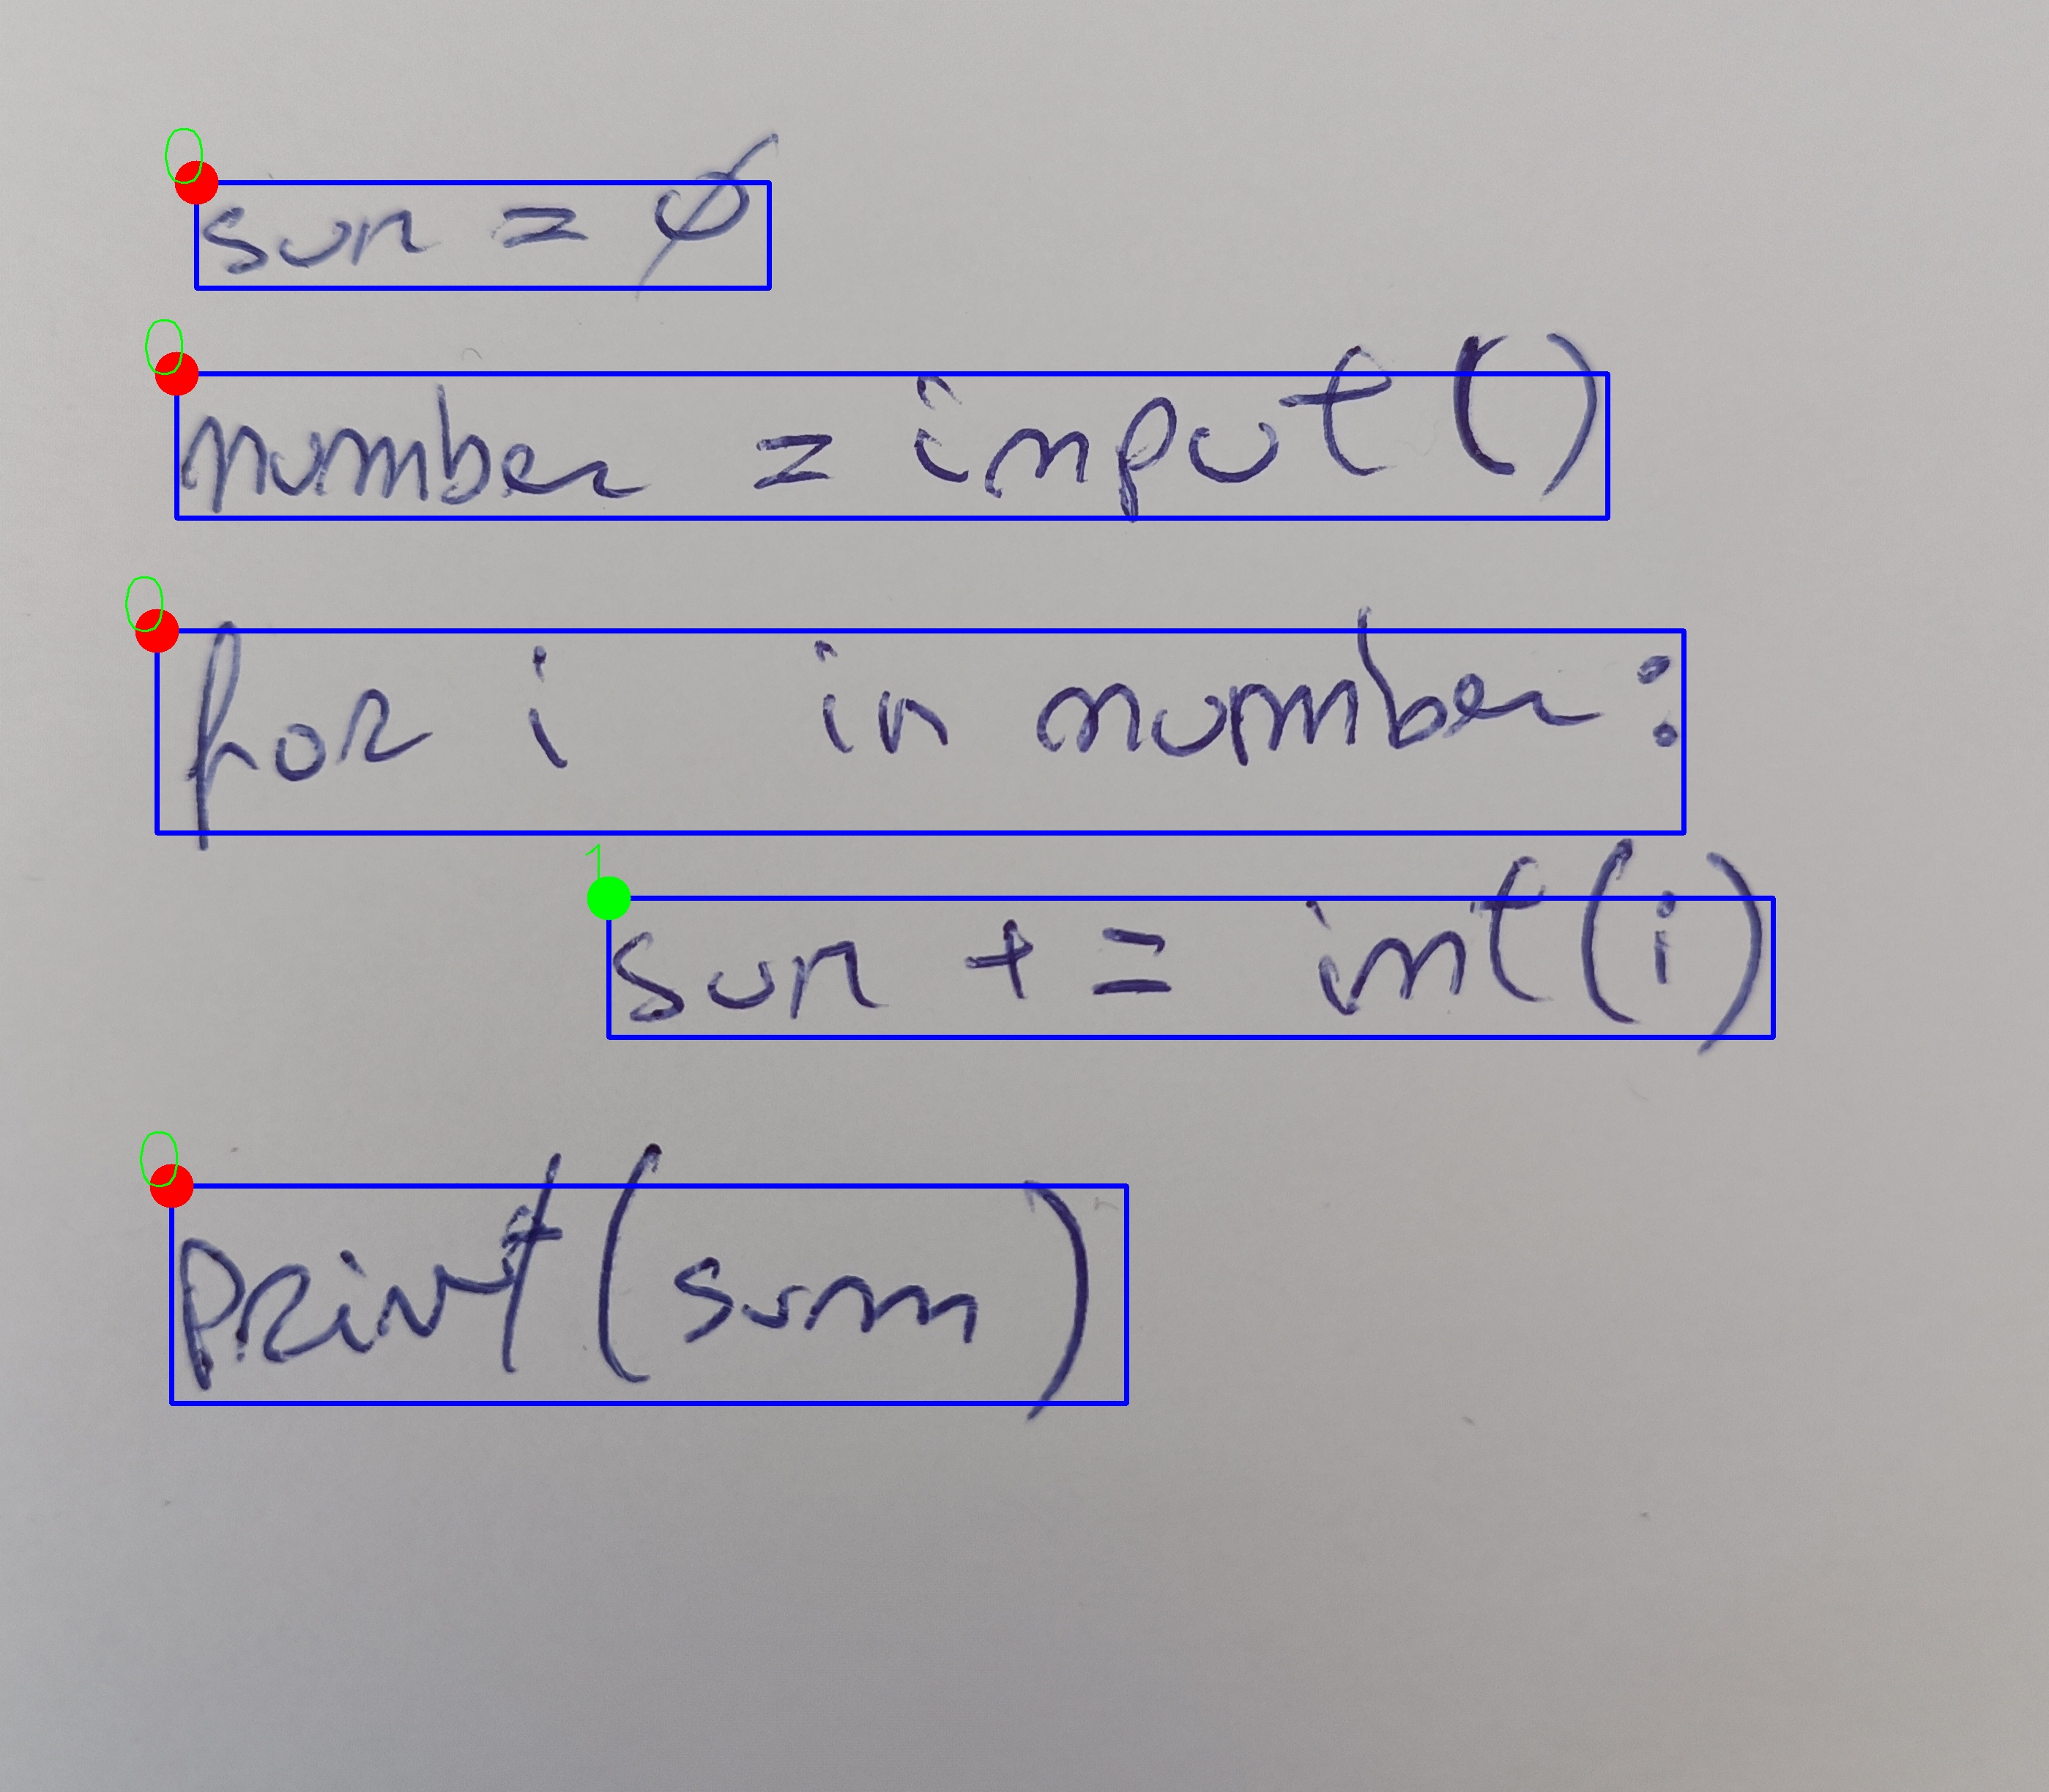 0
sun = 0
0
number = input()
0
for i in number:
1
sun += int(i)
0
print(sum)